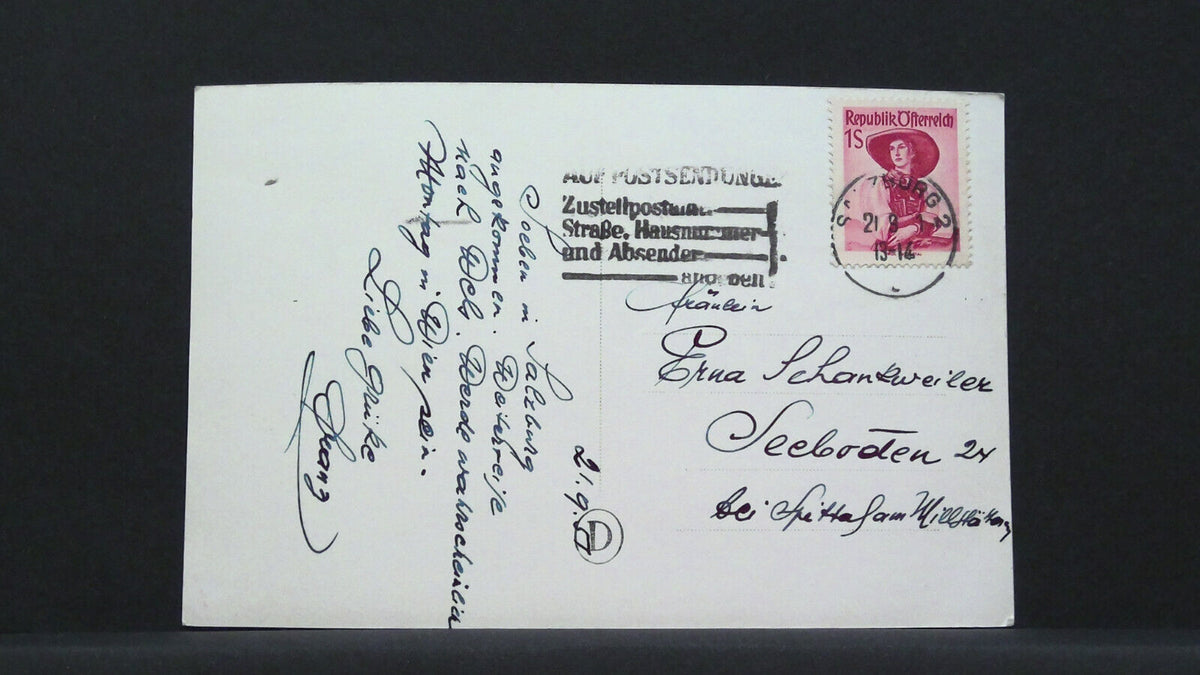 Republik Österreich
1S
21 9
13-14
AUF POSTSENDUNGE
Zustellpostamt
Straße, Hausnummer
und Absender
angeben
21.9.
Soeben in Salzburg
angekommen. Weiterreise
nach Wels. Werde wahrscheinlich
Montag in Wien sein.
Liebe Grüße
Franz
Fräulein
Erna Schankweiler
Seeboden 24
bei Spittal am Millstätter